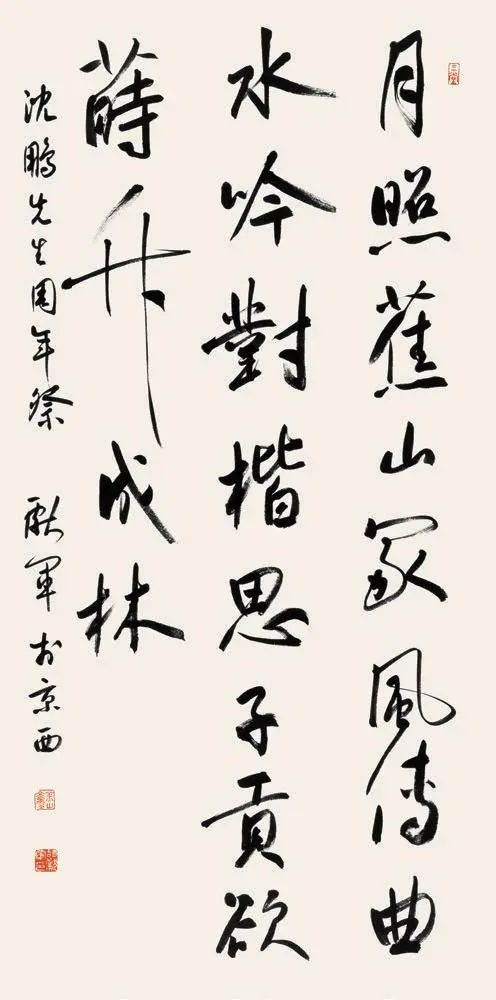 月照蕉山冢風傳曲
水吟對楷思子貢欲
蒔升成林
沈鵬先生周年祭 獻軍於京西